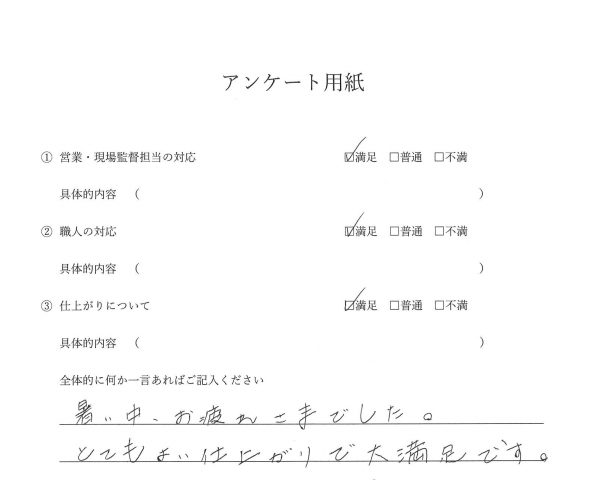 アンケート用紙
① 営業・現場監督担当の対応 ☑満足 □普通 □不満
具体的内容 （ ）
② 職人の対応 ☑満足 □普通 □不満
具体的内容 （ ）
③ 仕上がりについて ☑満足 □普通 □不満
具体的内容 （ ）
全体的に何か一言あればご記入ください
暑い中、お疲れさまでした。
とてもよい仕上がりで大満足です。